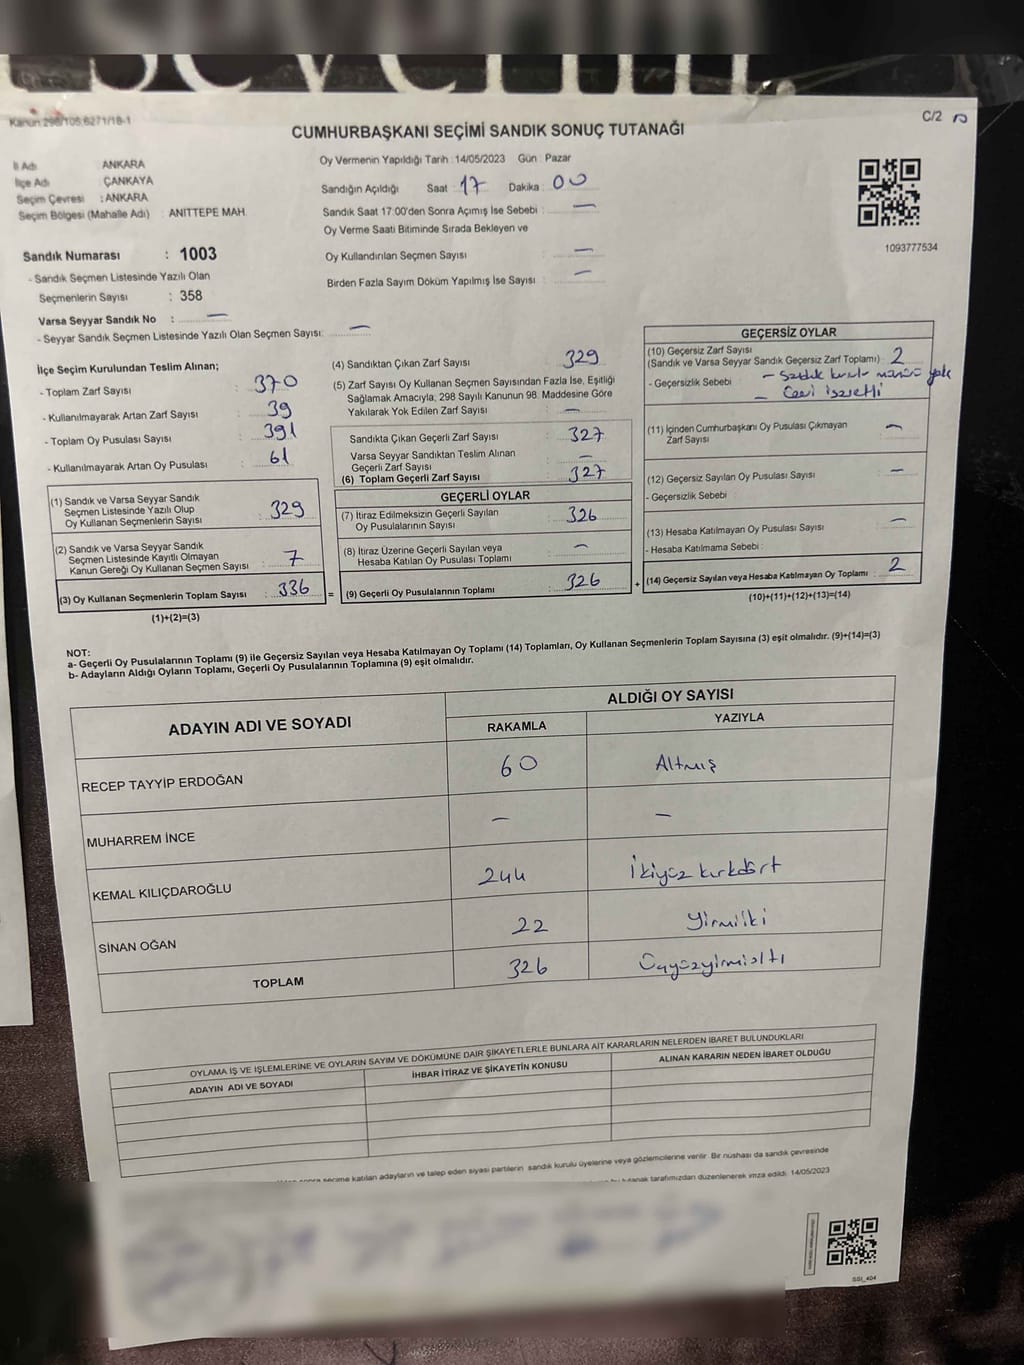 sevelim.
Kanun:298/105;6271/18-1
C/2
CUMHURBAŞKANI SEÇİMİ SANDIK SONUÇ TUTANAĞI
İl Adı ANKARA
İlçe Adı ÇANKAYA
Seçim Çevresi : ANKARA
Seçim Bölgesi (Mahalle Adı) : ANITTEPE MAH.
Oy Vermenin Yapıldığı Tarih : 14/05/2023 Gün : Pazar
Sandığın Açıldığı Saat : 17 Dakika : 00
Sandık Saat 17:00'den Sonra Açımış İse Sebebi : —
Oy Verme Saati Bitiminde Sırada Bekleyen ve
Oy Kullandırılan Seçmen Sayısı : —
Birden Fazla Sayım Döküm Yapılmış İse Sayısı : —
1093777534
Sandık Numarası : 1003
- Sandık Seçmen Listesinde Yazılı Olan
Seçmenlerin Sayısı : 358
Varsa Seyyar Sandık No : —
- Seyyar Sandık Seçmen Listesinde Yazılı Olan Seçmen Sayısı: —
İlçe Seçim Kurulundan Teslim Alınan;
- Toplam Zarf Sayısı : 370
- Kullanılmayarak Artan Zarf Sayısı : 39
- Toplam Oy Pusulası Sayısı : 391
- Kullanılmayarak Artan Oy Pusulası : 61
(1) Sandık ve Varsa Seyyar Sandık
Seçmen Listesinde Yazılı Olup
Oy Kullanan Seçmenlerin Sayısı : 329
(2) Sandık ve Varsa Seyyar Sandık
Seçmen Listesinde Kayıtlı Olmayan
Kanun Gereği Oy Kullanan Seçmen Sayısı : 7
(3) Oy Kullanan Seçmenlerin Toplam Sayısı : 336
(1)+(2)=(3)
(4) Sandıktan Çıkan Zarf Sayısı : 329
(5) Zarf Sayısı Oy Kullanan Seçmen Sayısından Fazla İse, Eşitliği
Sağlamak Amacıyla, 298 Sayılı Kanunun 98. Maddesine Göre
Yakılarak Yok Edilen Zarf Sayısı : —
Sandıkta Çıkan Geçerli Zarf Sayısı : 327
Varsa Seyyar Sandıktan Teslim Alınan
Geçerli Zarf Sayısı : —
(6) Toplam Geçerli Zarf Sayısı : 327
GEÇERLİ OYLAR
(7) İtiraz Edilmeksizin Geçerli Sayılan
Oy Pusulalarının Sayısı : 326
(8) İtiraz Üzerine Geçerli Sayılan veya
Hesaba Katılan Oy Pusulası Toplamı : —
= (9) Geçerli Oy Pusulalarının Toplamı : 326
GEÇERSİZ OYLAR
(10) Geçersiz Zarf Sayısı
(Sandık ve Varsa Seyyar Sandık Geçersiz Zarf Toplamı) : 2
- Geçersizlik Sebebi : — Sandık kurulu mührü yok
— Geri işaretli
(11) İçinden Cumhurbaşkanı Oy Pusulası Çıkmayan
Zarf Sayısı : —
(12) Geçersiz Sayılan Oy Pusulası Sayısı : —
- Geçersizlik Sebebi :
(13) Hesaba Katılmayan Oy Pusulası Sayısı : —
- Hesaba Katılmama Sebebi :
+ (14) Geçersiz Sayılan veya Hesaba Katılmayan Oy Toplamı : 2
(10)+(11)+(12)+(13)=(14)
NOT:
a- Geçerli Oy Pusulalarının Toplamı (9) ile Geçersiz Sayılan veya Hesaba Katılmayan Oy Toplamı (14) Toplamları, Oy Kullanan Seçmenlerin Toplam Sayısına (3) eşit olmalıdır. (9)+(14)=(3)
b- Adayların Aldığı Oyların Toplamı, Geçerli Oy Pusulalarının Toplamına (9) eşit olmalıdır.
ADAYIN ADI VE SOYADI ALDIĞI OY SAYISI
RAKAMLA YAZIYLA
RECEP TAYYİP ERDOĞAN 60 Altmış
MUHARREM İNCE — —
KEMAL KILIÇDAROĞLU 244 İkiyüz kırkdört
SİNAN OĞAN 22 Yirmiiki
TOPLAM 326 Üçyüzyirmialtı
OYLAMA İŞ VE İŞLEMLERİNE VE OYLARIN SAYIM VE DÖKÜMÜNE DAİR ŞİKAYETLERLE BUNLARA AİT KARARLARIN NELERDEN İBARET BULUNDUKLARI
ADAYIN ADI VE SOYADI İHBAR İTİRAZ VE ŞİKAYETİN KONUSU ALINAN KARARIN NEDEN İBARET OLDUĞU
sonra seçime katılan adayların ve talep eden siyasi partilerin sandık kurulu üyelerine veya gözlemcilerine verilir. Bir nüshası da sandık çevresinde
tutanak tarafımızdan düzenlenerek imza edildi. 14/05/2023
SSI_404